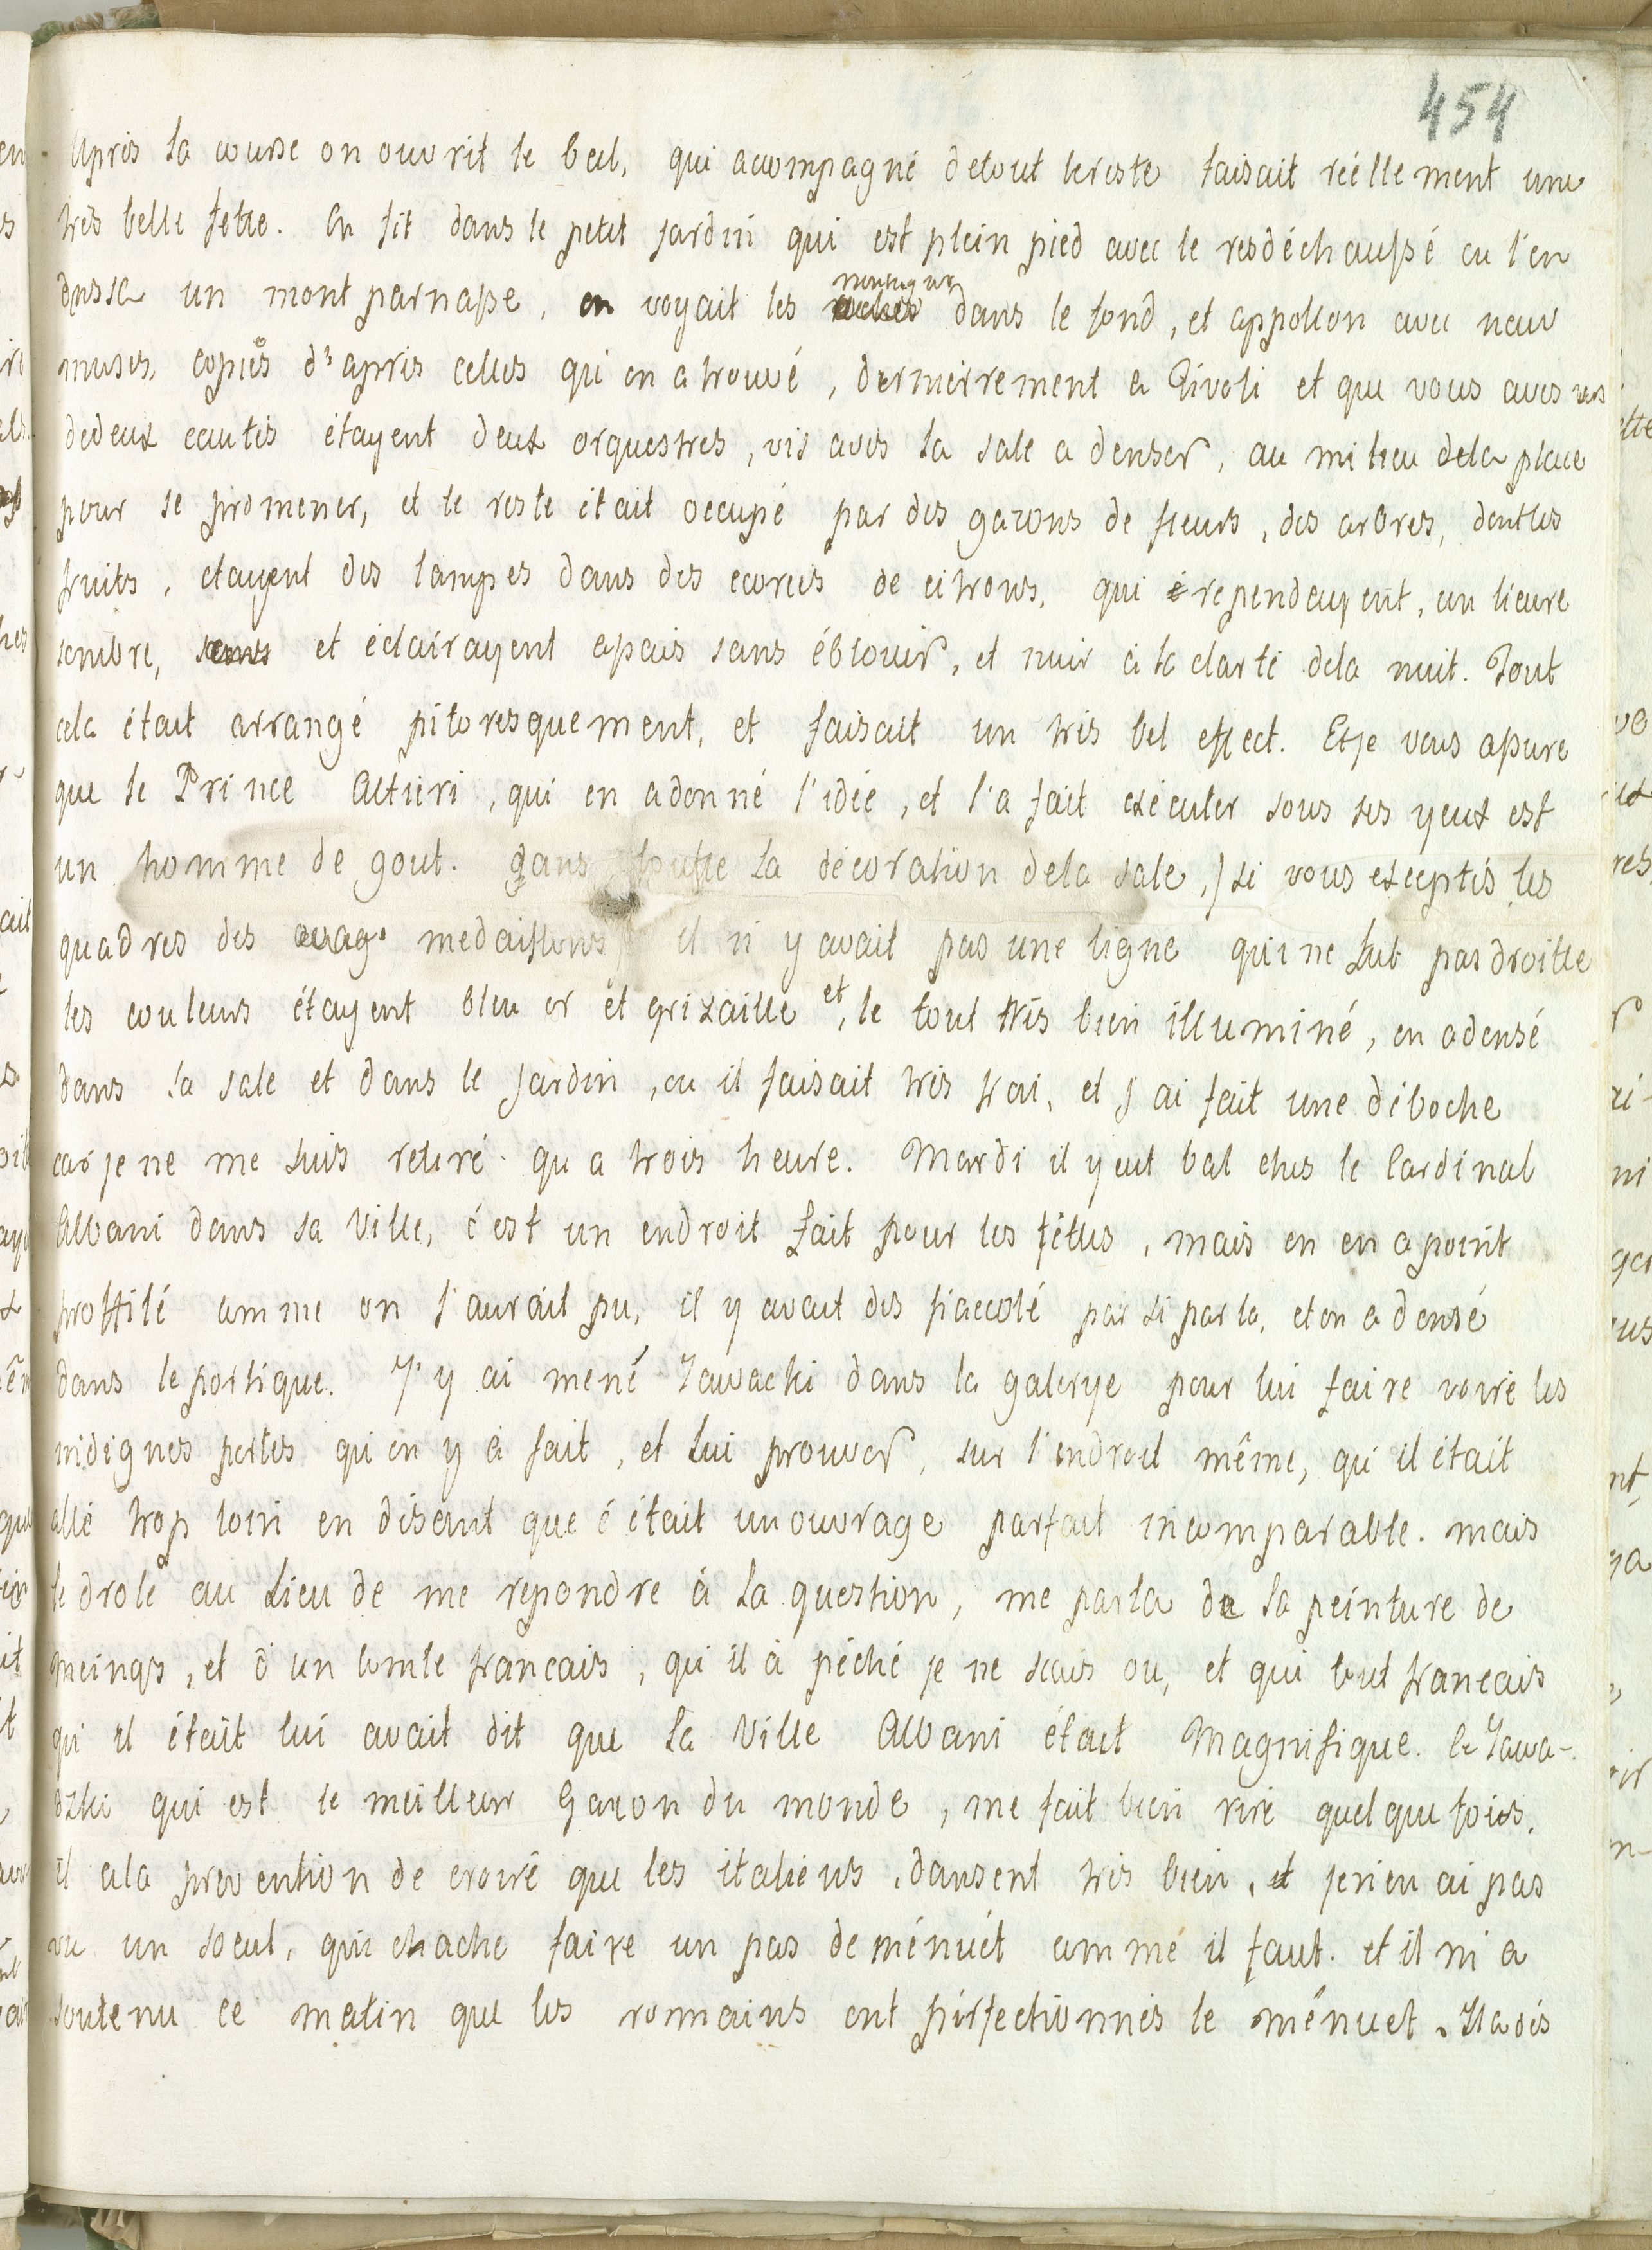 454
Apres la course on ouvrit le bal, qui acompagné detout lereste faisait réellement une
très belle fette. On fit dans le petit jardin qui est plein pied avec le resdéchaussé ou l'en
densa un mont parnasse, on voyait les montagnes dans le fond, et appollon avec neuv
muses, copiés d'apris celles qu'on a trouvé, dernierrement a Tivoli et que vous aves vus
dedeux coutés étayent deux orquestres, vis avis la sale a denser, au milieu dela place
pour se promener, et le reste était occupé par des gazons de fleurs, des arbres, dontles
fruits, etayent des lampes dans des ecorces de citrons, qui rependeayent, un lieure
sombre, et éclairayent apais sans éblouir, et nuir à la clarté dela nuit. Tout
cela était arrangé pitoresquement, et faisait un tris bel effect. Et je vous assure
que le Prince Altieri, qui en adonné l'idée, et l'a fait exécuter sous ses yeux est
un homme de gout. Dans toutte la décoration dela sale, (si vous exceptés les
quadres des medaillons) il n'y avait pas une ligne qui ne fut pas droitte
les couleurs étayent bleu or et grizaille et, le tout très bien illuminé, on adensé
dans la sale et dans le jardin, ou il faisait tris frai, et j'ai fait une déboche
car je ne me suis retiré qu'a trois heure. Mardi il y eut bal ches le Cardinal
Albani dans sa Ville, c'est un endroit fait pour les fêttes, mais on en apoint
proffité comme on l'aurait pu, il y avait des fiaccolé par si par la, et on a densé
dans le portique. J'y ai mené Zawacki dans la galerye pour lui faire voire les
indignes portes qu'on y à fait, et lui prouver, sur l'endroit même, qu'il était
allé trop loin en disant que c'était un ouvrage parfait incomparable. mais
le drole au lieu de me repondre à la question, me parla de la peinture de
meings, et d'un Comte francais, qu'il à péché je ne scais ou, et qui tout francais
qu'il était lui avait dit que la Ville Albani était Magnifique. Ce Zawa-
dzki qui est le meilleur Garzon du monde, me fait bien rire quelque fois.
il ala prevention de croire que les italiens dansent tris bien, et jenen ai pas
vu un soeul, qui chache faire un pas de ménuét comme il faut. et il m'a
soutenu ce matin que les romains ont pirfectionnés le ménuet. Il a dis